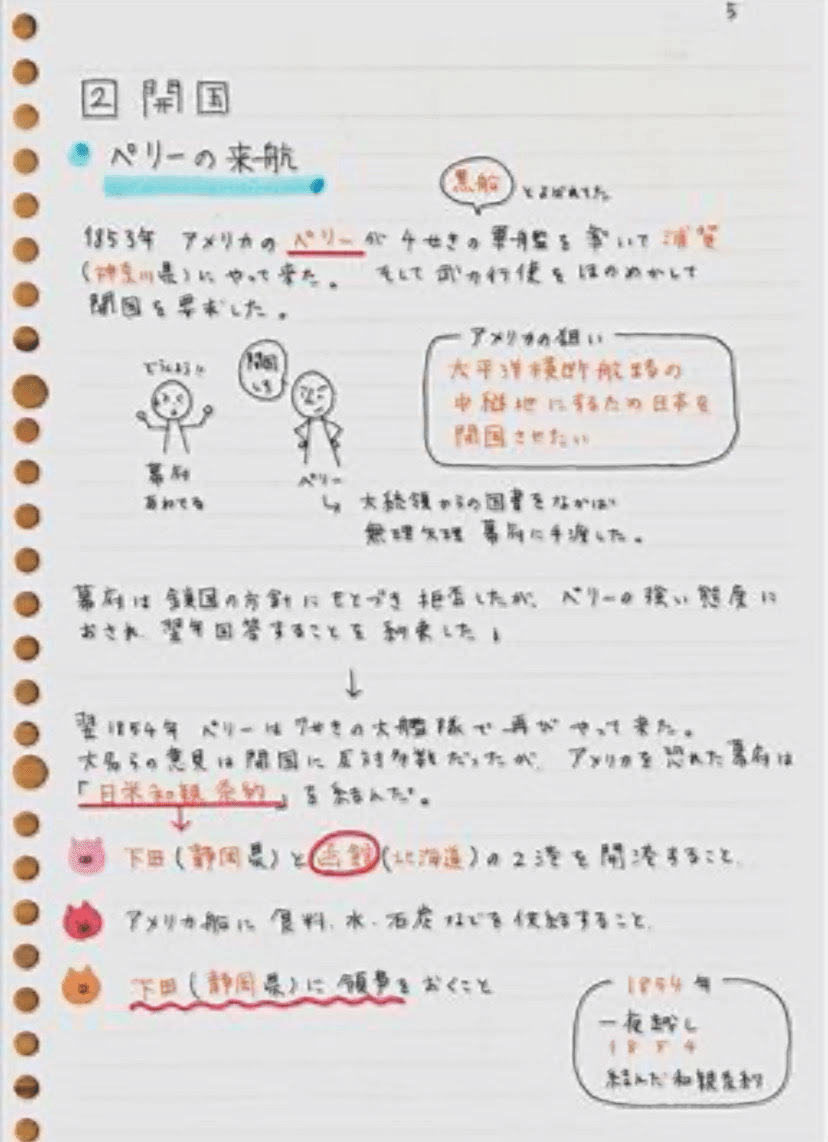 5
2 開国
ペリーの来航
黒船 とよばれてた
1853年 アメリカの ペリーが 4せきの軍艦を率いて 浦賀
(神奈川県)にやって来た。 そして武力行使をほのめかして
開国を要求した。
アメリカの狙い
太平洋横断航路の
中継地にするため日本を
開国させたい
どうしよう!!
開国
しろ
幕府
あわてる
ペリー
↳ 大統領からの国書をなかば
無理矢理 幕府に手渡した。
幕府は鎖国の方針にもとづき拒否したが、ペリーの強い態度に
おされ 翌年回答することを約束した
↓
翌1854年 ペリーは7せきの大艦隊で再びやって来た。
大名らの意見は開国に反対多数だったが、アメリカを恐れた幕府は
「日米和親条約」を結んだ。
下田(静岡県)と函館(北海道)の2港を開港すること、
アメリカ船に食料、水、石炭などを供給すること、
下田(静岡県)に領事をおくこと
1854年
一夜越し
1 8 5 4
結んだ和親条約